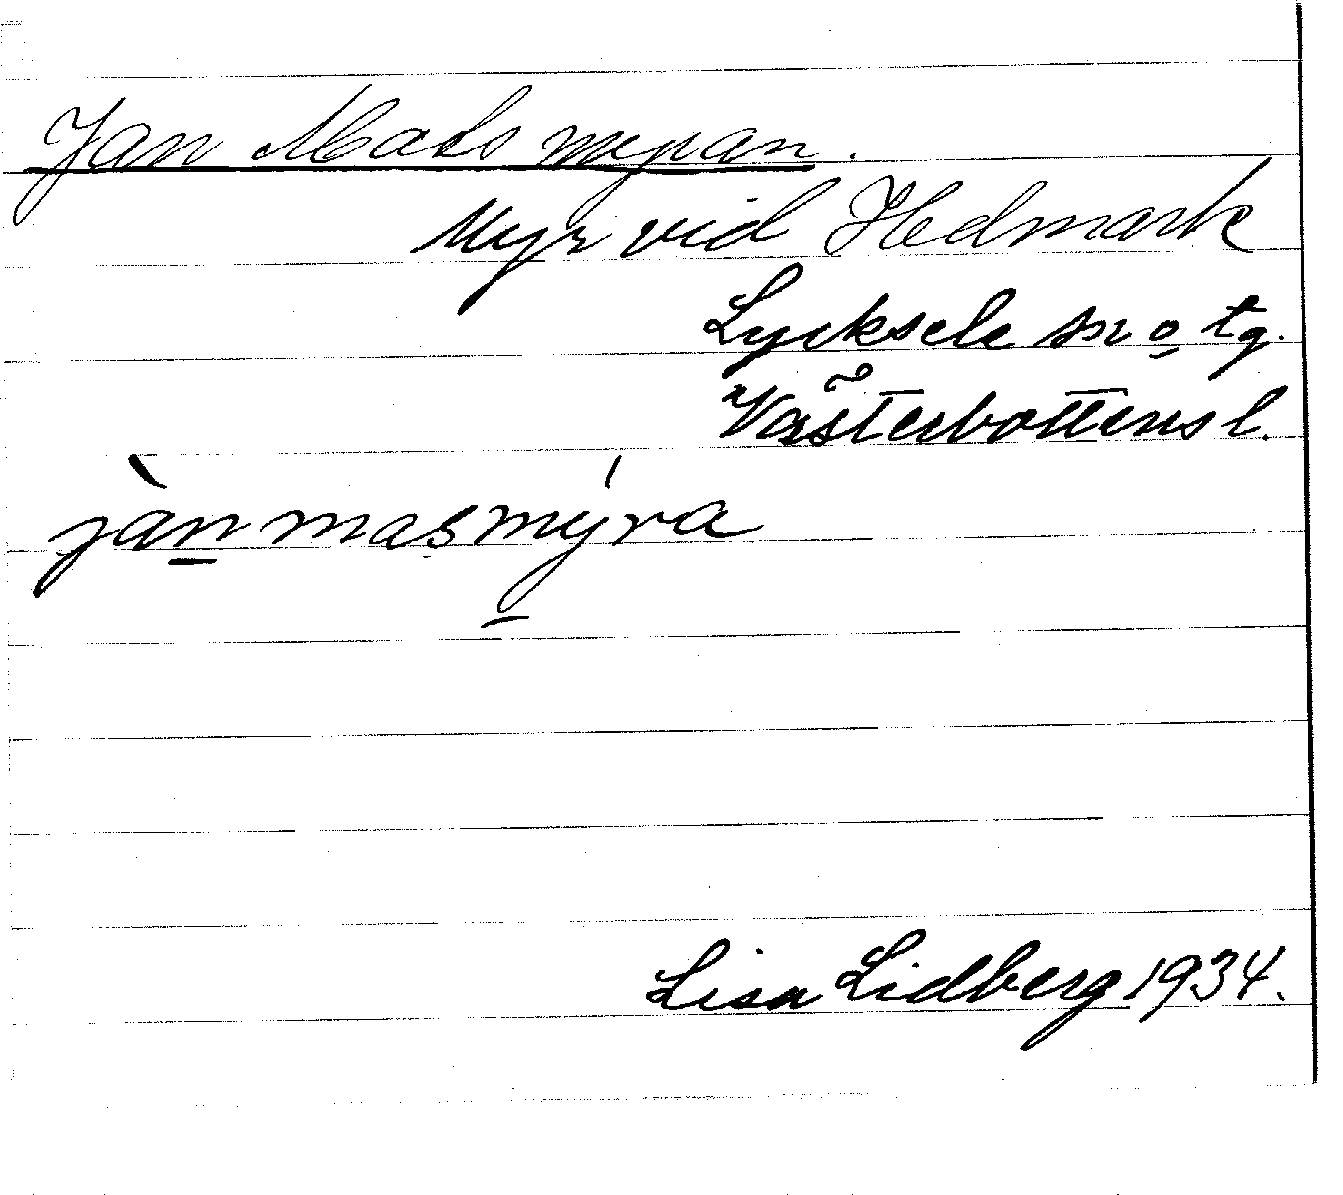 Jan Mats myran.
Myr vid Hedmark
Lycksele sn o tg.
Västerbottens l.
jànmasmýra
Lisa Lidberg 1934.